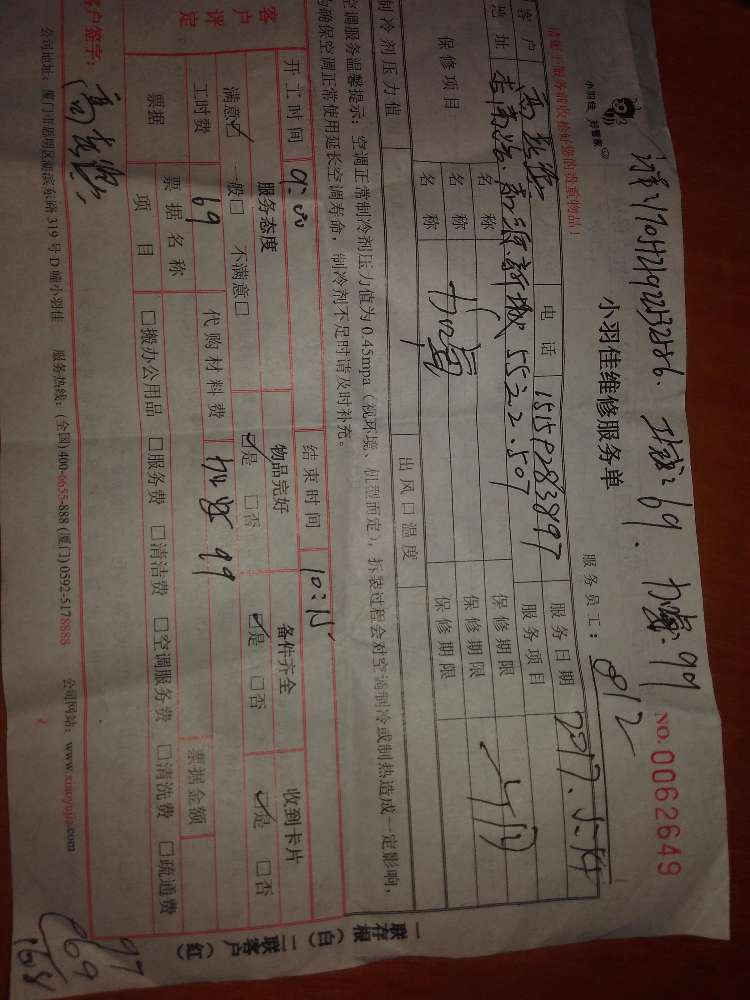 工费: 69. 加氟: 99
小羽佳 好管家
小羽佳维修服务单
NO. 0062649
服务员工: 812
请在服务前收拾好您的贵重物品!
客户 电话 15159283897 服务日期
地址 552.2.507 服务项目
保修项目 名称 保修期限
名称 加氟 保修期限
名称 保修期限
制冷剂压力值 出风口温度
空调服务温馨提示: 空调正常制冷剂压力值为0.45mpa (视环境、机型而定), 拆装过程会对空调制冷或制热造成一定影响,
为确保空调正常使用延长空调寿命, 制冷剂不足时请及时补充。
开工时间 9:00 结束时间 10:15
客户评定 服务态度 物品完好 备件齐全 收到卡片
满意☑ 一般□ 不满意□ ☑是 □否 ☑是 □否 ☑是 □否
工时费 69 代购材料费 加氟 99
票据 票据名称 票据金额
项目 □搬办公用品 □服务费 □清洁费 □空调服务费 □清洗费 □疏通费
客户签字:
公司地址: 厦门市思明区湖滨东路319号D幢小羽佳 服务热线: (全国) 400-6655-888 (厦门) 0592-5178888 公司网站: www.xiaoyujia.com
一联存根 (白) 二联客户 (红)
99
69
168